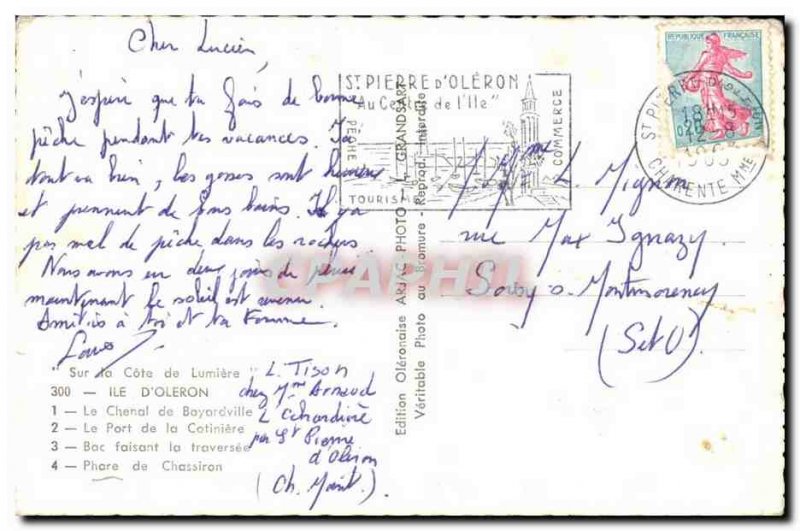 Cher Lucien,
J'espère que tu fais de bonne
pêche pendant tes vacances. Ici
tout va bien, les gosses sont heureux
et prennent de bons bains. Il y a
pas mal de pêche dans les rochers
Nous avons eu deux jours de pluie
maintenant le soleil est revenu.
Amitiés à toi et ta Femme.
"Sur la Côte de Lumière"
300 — ILE D'OLERON
1 — Le Chenal de Boyardville
2 — Le Port de la Cotinière
3 — Bac faisant la traversée
4 — Phare de Chassiron
L. Tison
chez Mme Arnaud
par St Pierre
d'Oléron
(Ch. Marit.)
Edition Oléronaise ARJAC-PHOTO GRANDSART
Véritable Photo au Bromure - Reprod. Interdite
ST PIERRE D'OLÉRON
"Au Centre de l'Ile"
PÊCHE
TOURISME
COMMERCE
REPUBLIQUE FRANÇAISE
ST PIERRE D'OLERON
18H15
12-8
CHARENTE MME
L. Mignon
rue Max Ignazy
Soisy s. Montmorency
(S et O)
CPAPHIL